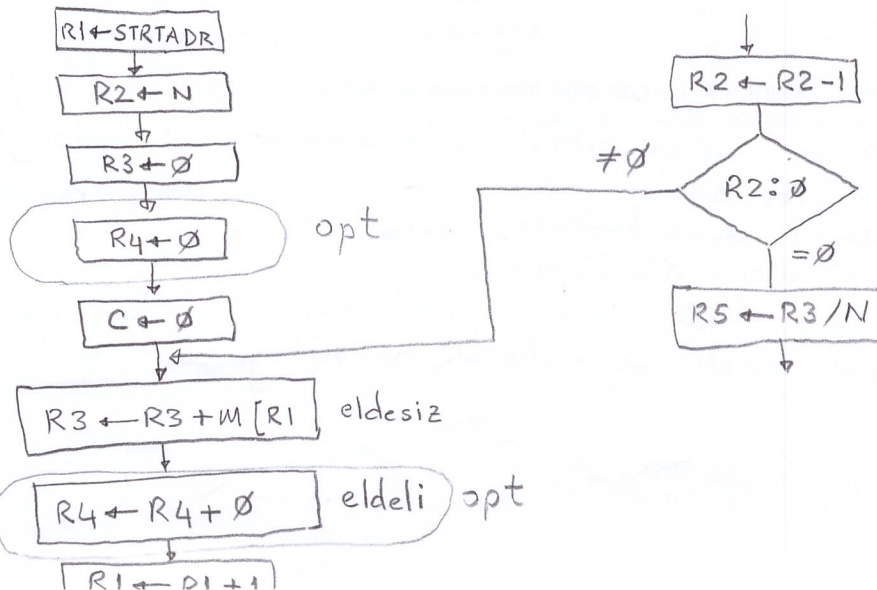 R1←STRTADR
R2←N
R3←Ø
R4←Ø opt
C←Ø
R3←R3+M[R1 eldesiz
R4←R4+Ø eldeli opt
R1←R1+1
R2←R2-1
≠Ø
R2:Ø
=Ø
R5←R3/N